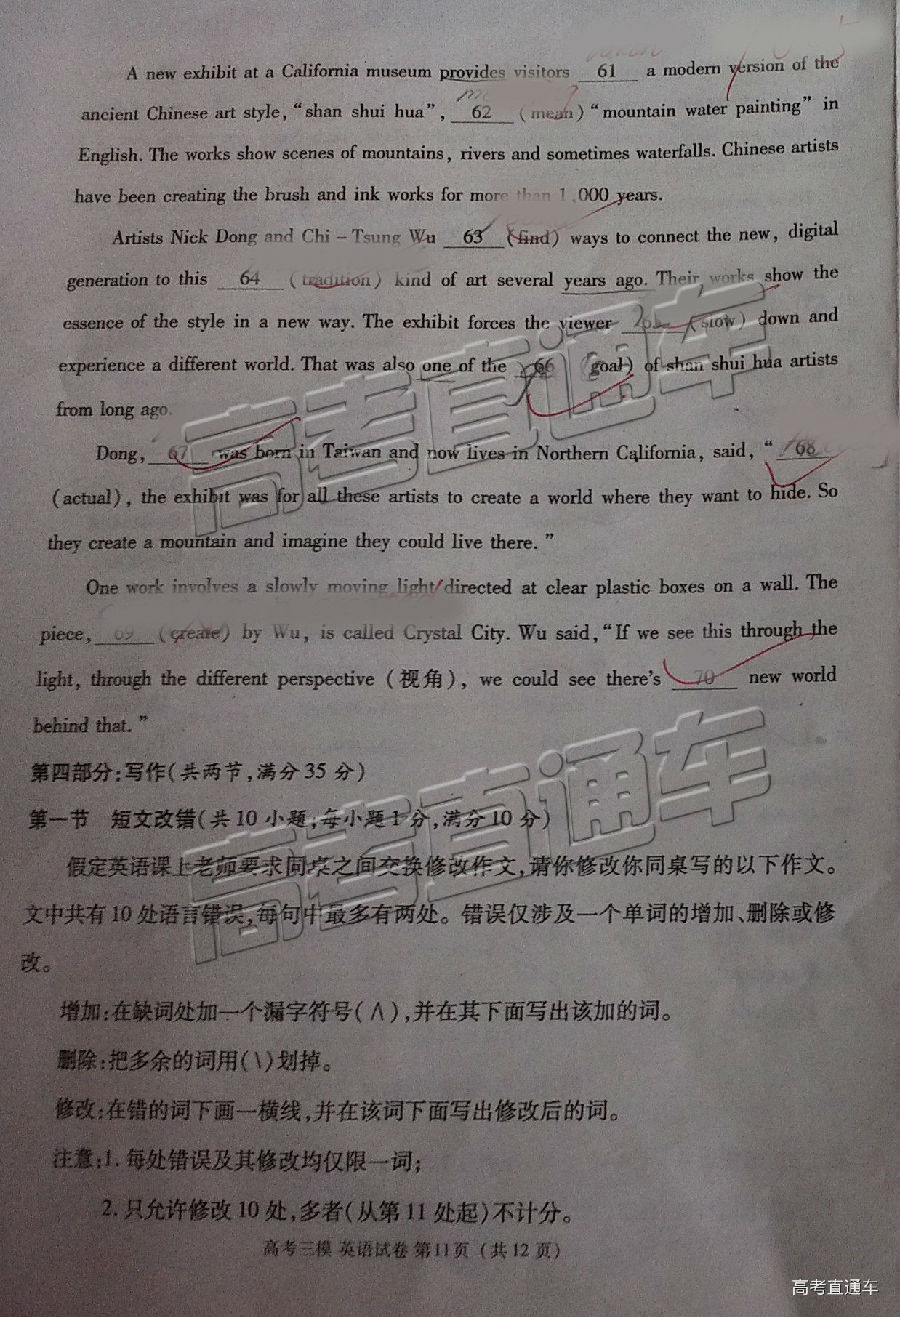 A new exhibit at a California museum provides visitors 61 a modern version of the
ancient Chinese art style, “shan shui hua”, 62 (mean) “mountain water painting” in
English. The works show scenes of mountains, rivers and sometimes waterfalls. Chinese artists
have been creating the brush and ink works for more than 1,000 years.
Artists Nick Dong and Chi – Tsung Wu 63 (find) ways to connect the new, digital
generation to this 64 (tradition) kind of art several years ago. Their works show the
essence of the style in a new way. The exhibit forces the viewer 65 (slow) down and
experience a different world. That was also one of the 66 (goal) of shan shui hua artists
from long ago.
Dong, 67 was born in Taiwan and now lives in Northern California, said, “ 68
(actual), the exhibit was for all these artists to create a world where they want to hide. So
they create a mountain and imagine they could live there.”
One work involves a slowly moving light directed at clear plastic boxes on a wall. The
piece, 69 (create) by Wu, is called Crystal City. Wu said, “If we see this through the
light, through the different perspective (视角), we could see there's 70 new world
behind that.”
第四部分:写作(共两节,满分35分)
第一节 短文改错(共10小题;每小题1分,满分10分)
假定英语课上老师要求同桌之间交换修改作文,请你修改你同桌写的以下作文。
文中共有10处语言错误,每句中最多有两处。错误仅涉及一个单词的增加、删除或修
改。
增加:在缺词处加一个漏字符号(∧),并在其下面写出该加的词。
删除:把多余的词用(\)划掉。
修改:在错的词下画一横线,并在该词下面写出修改后的词。
注意:1. 每处错误及其修改均仅限一词;
2. 只允许修改10处,多者(从第11处起)不计分。
高考三模 英语试卷 第11页 (共12页)
高考直通车
高考直通车
高考直通车